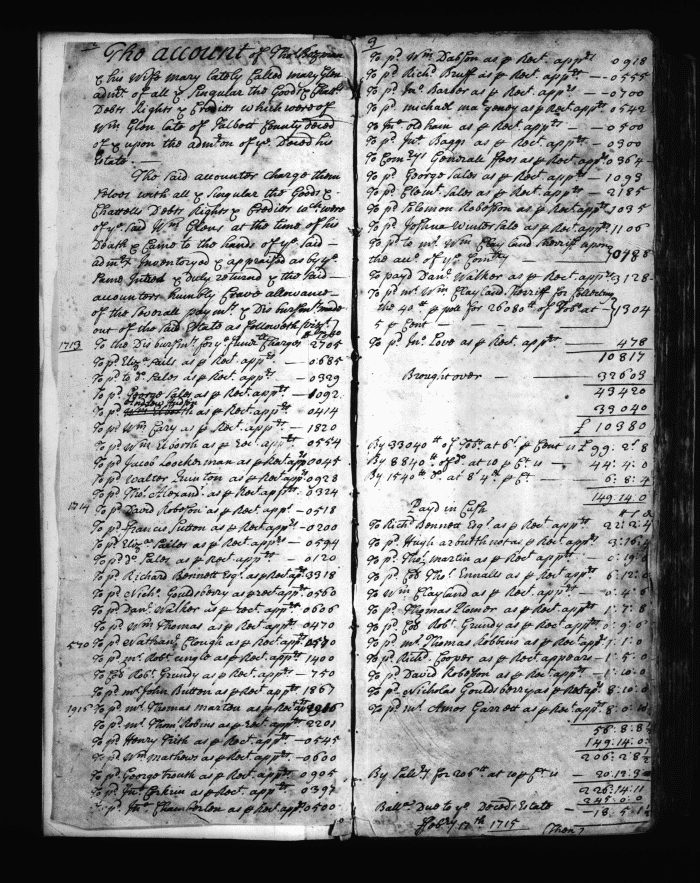 The account of Tho Bozman
& his Wife mary lately Called mary Glen
adm.r of all & Singular the Goods & Chatt
Debts Rights & Credits which were of
Wm Glen late of Talbott County deced
of & upon the admcon of ye Deced his
Estate. —
The Said accounter Charge them
Selves with all & Singular the Goods &
Chattells Debts Rights & Credits wch were
of ye said Wm Glens at the time of his
Death & Came to the hands of ye Said
adm.x Inventoryed & appraised as by ye
Same Intred & duly returned & the Said
accounters humbly Crave allowance
of the Severall paymts & Disbursmts made
out of the Said Estate as followeth Vizt
1713 To the Disbursmts for ye funll Charges 2705
To pd Eliza Sails as p Rect appts — 0685
To pd to do Sales as p Rect appts — 0329
To pd George Sales as p Rect appts — 1092
To pd Andrew Hudson as p Rect appts — 0414
To pd Wm Cary as p Rect appts — 1820
To pd Wm Elborth as p Rect appts — 0554
To pd Jacob Loockerman as p Rect appts 0045
To pd Walter Quinton as p Rect appts 0928
To pd Tho. Alexandr as p Rect appts 0324
1714 To pd David Robeson as p Rect appts — 0518
To pd Francis Sutton as p Rect appts — 0200
To pd Eliza Sailes as p Rect appts — 0594
To pd do Sales as p Rect appts — 0120
To pd Richard Bennett Esqr as p Rect apts 3318
To pd Nicho. Gouldsbery as p rect appts 0560
To pd Danl Walker as p rect appts 0606
To pd Wm Thomas as p Rect appts 0470
570 To pd Nathanl Clough as p Rect appts 0570
To pd mr Robt ungle as p Rect appts 1400
To Col Robt Grundy as p Rect appts — 750
To pd mr John Button as p Rect appts 1867
1916 To pd mr Thomas marton as p Rect appts 1916
To pd mr Thom Robins as p Rect appts — 2201
To pd Henry Frith as p Rect appts — 0545
To pd Wm Mathews as p Rect appts — 0600
To pd George Trouth as p Rect appts 0905
To pd Jno Corkrin as p Rect appts — 0397
To pd Jno Chamberlon as p Rect appts 0500
9
To pd Wm Dabson as p Rect appts 0918
To pd Richd Bruff as p Rect appts — 0555
To pd Jno Barker as p Rect appts — 0700
To pd michael ma geney as p Rect appts 0542
To Jno oldham as p Rect appts — 0500
To pd Jno Baggs as p Rect appts — 0300
To Comrys Generall fees as p Rect appts 0364
To pd George Sales as p Rect appts — 1093
To pd Clemt Sales as p Rect appts — 2185
To pd Solomon Robesson as p Rect appts 1035
To pd Joshua Winter Sale as p Rect appts 1106
To pd to mr Wm Clayland Sherriff upon
the acct of ye Country — 0788
To payd Danl Walker as p Rect appts 3128
To pd mr Wm Clayland Sherriff for Collecting
the 40 lb p pole for 26080 lb of Tobo at 1304
5 p Cent —
To pd Jno Love as p Rect appts — 478
10817
Brought over — 32603
43420
33040
£ 10380
By 33040 lb of Tobo at 6s p Cent is £ 99. 2. 8
By 8840 lb of do at 10 p Ct is — 44: 4: 0
By 1540 lb do at 8s 4d p Ct — 6: 8: 4
149: 14: 0
Payd in Cash
To Richd Bennett Esqr as p Rect appts 22: 2: 4
To pd Hugh arbuthnot as p Rect appts 3: 16:
To pd Tho martin as p Rect appts — 0: 19:
To pd Col Tho Ennalls as p Rect appts 6: 12:
To Wm Clayland as p Rect appts — 0: 4:
To pd Thomas Homer as p Rect appts 1: 7: 8
To pd Col Robt Grundy as p Rect appts 0: 9:
To pd mr Thomas Robbins as p Rect appts 1: 1: 0
To pd Richd Cooper as p Rect appears — 1: 5: 0
To pd David Robesson as p Rect appts — 10: 0
To pd Nicholas Gouldsberry as p Rect aps 8: 10: 0
To pd mr Amos Garrett as p Rect appts 8: 0:
56: 8: 8½
149: 14: 0
206: 2: 8½
By Sallry for 206 lb at 10 p Ct is — 20: 12: 3
226: 14: 11
245: 0: 0
Balla Due to ye Deceds Estate — 18: 5: 1
Febry 17th 1715
(Then)